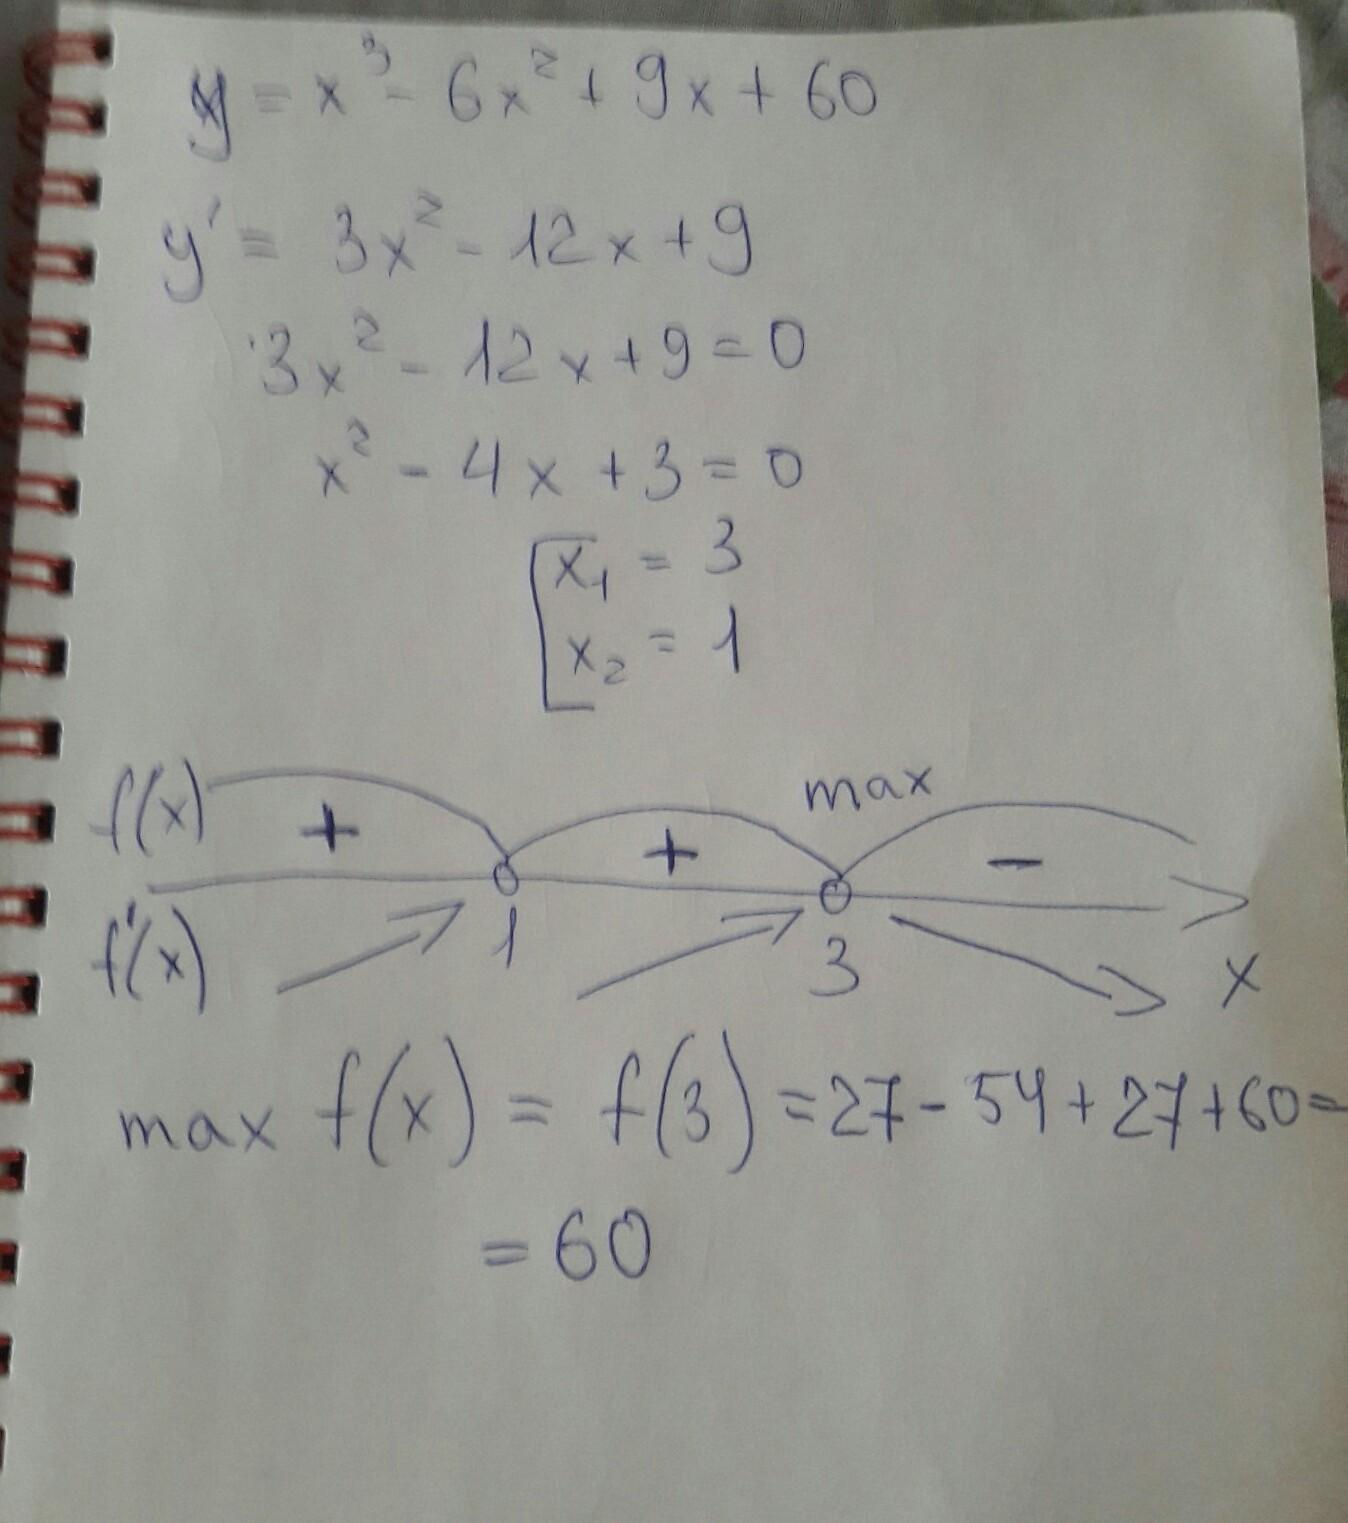 y = x³ - 6x² + 9x + 60
y' = 3x² - 12x + 9
3x² - 12x + 9 = 0
x² - 4x + 3 = 0
x₁ = 3
x₂ = 1
f(x) + + max -
f'(x) 1 3 x
max f(x) = f(3) = 27 - 54 + 27 + 60 =
= 60